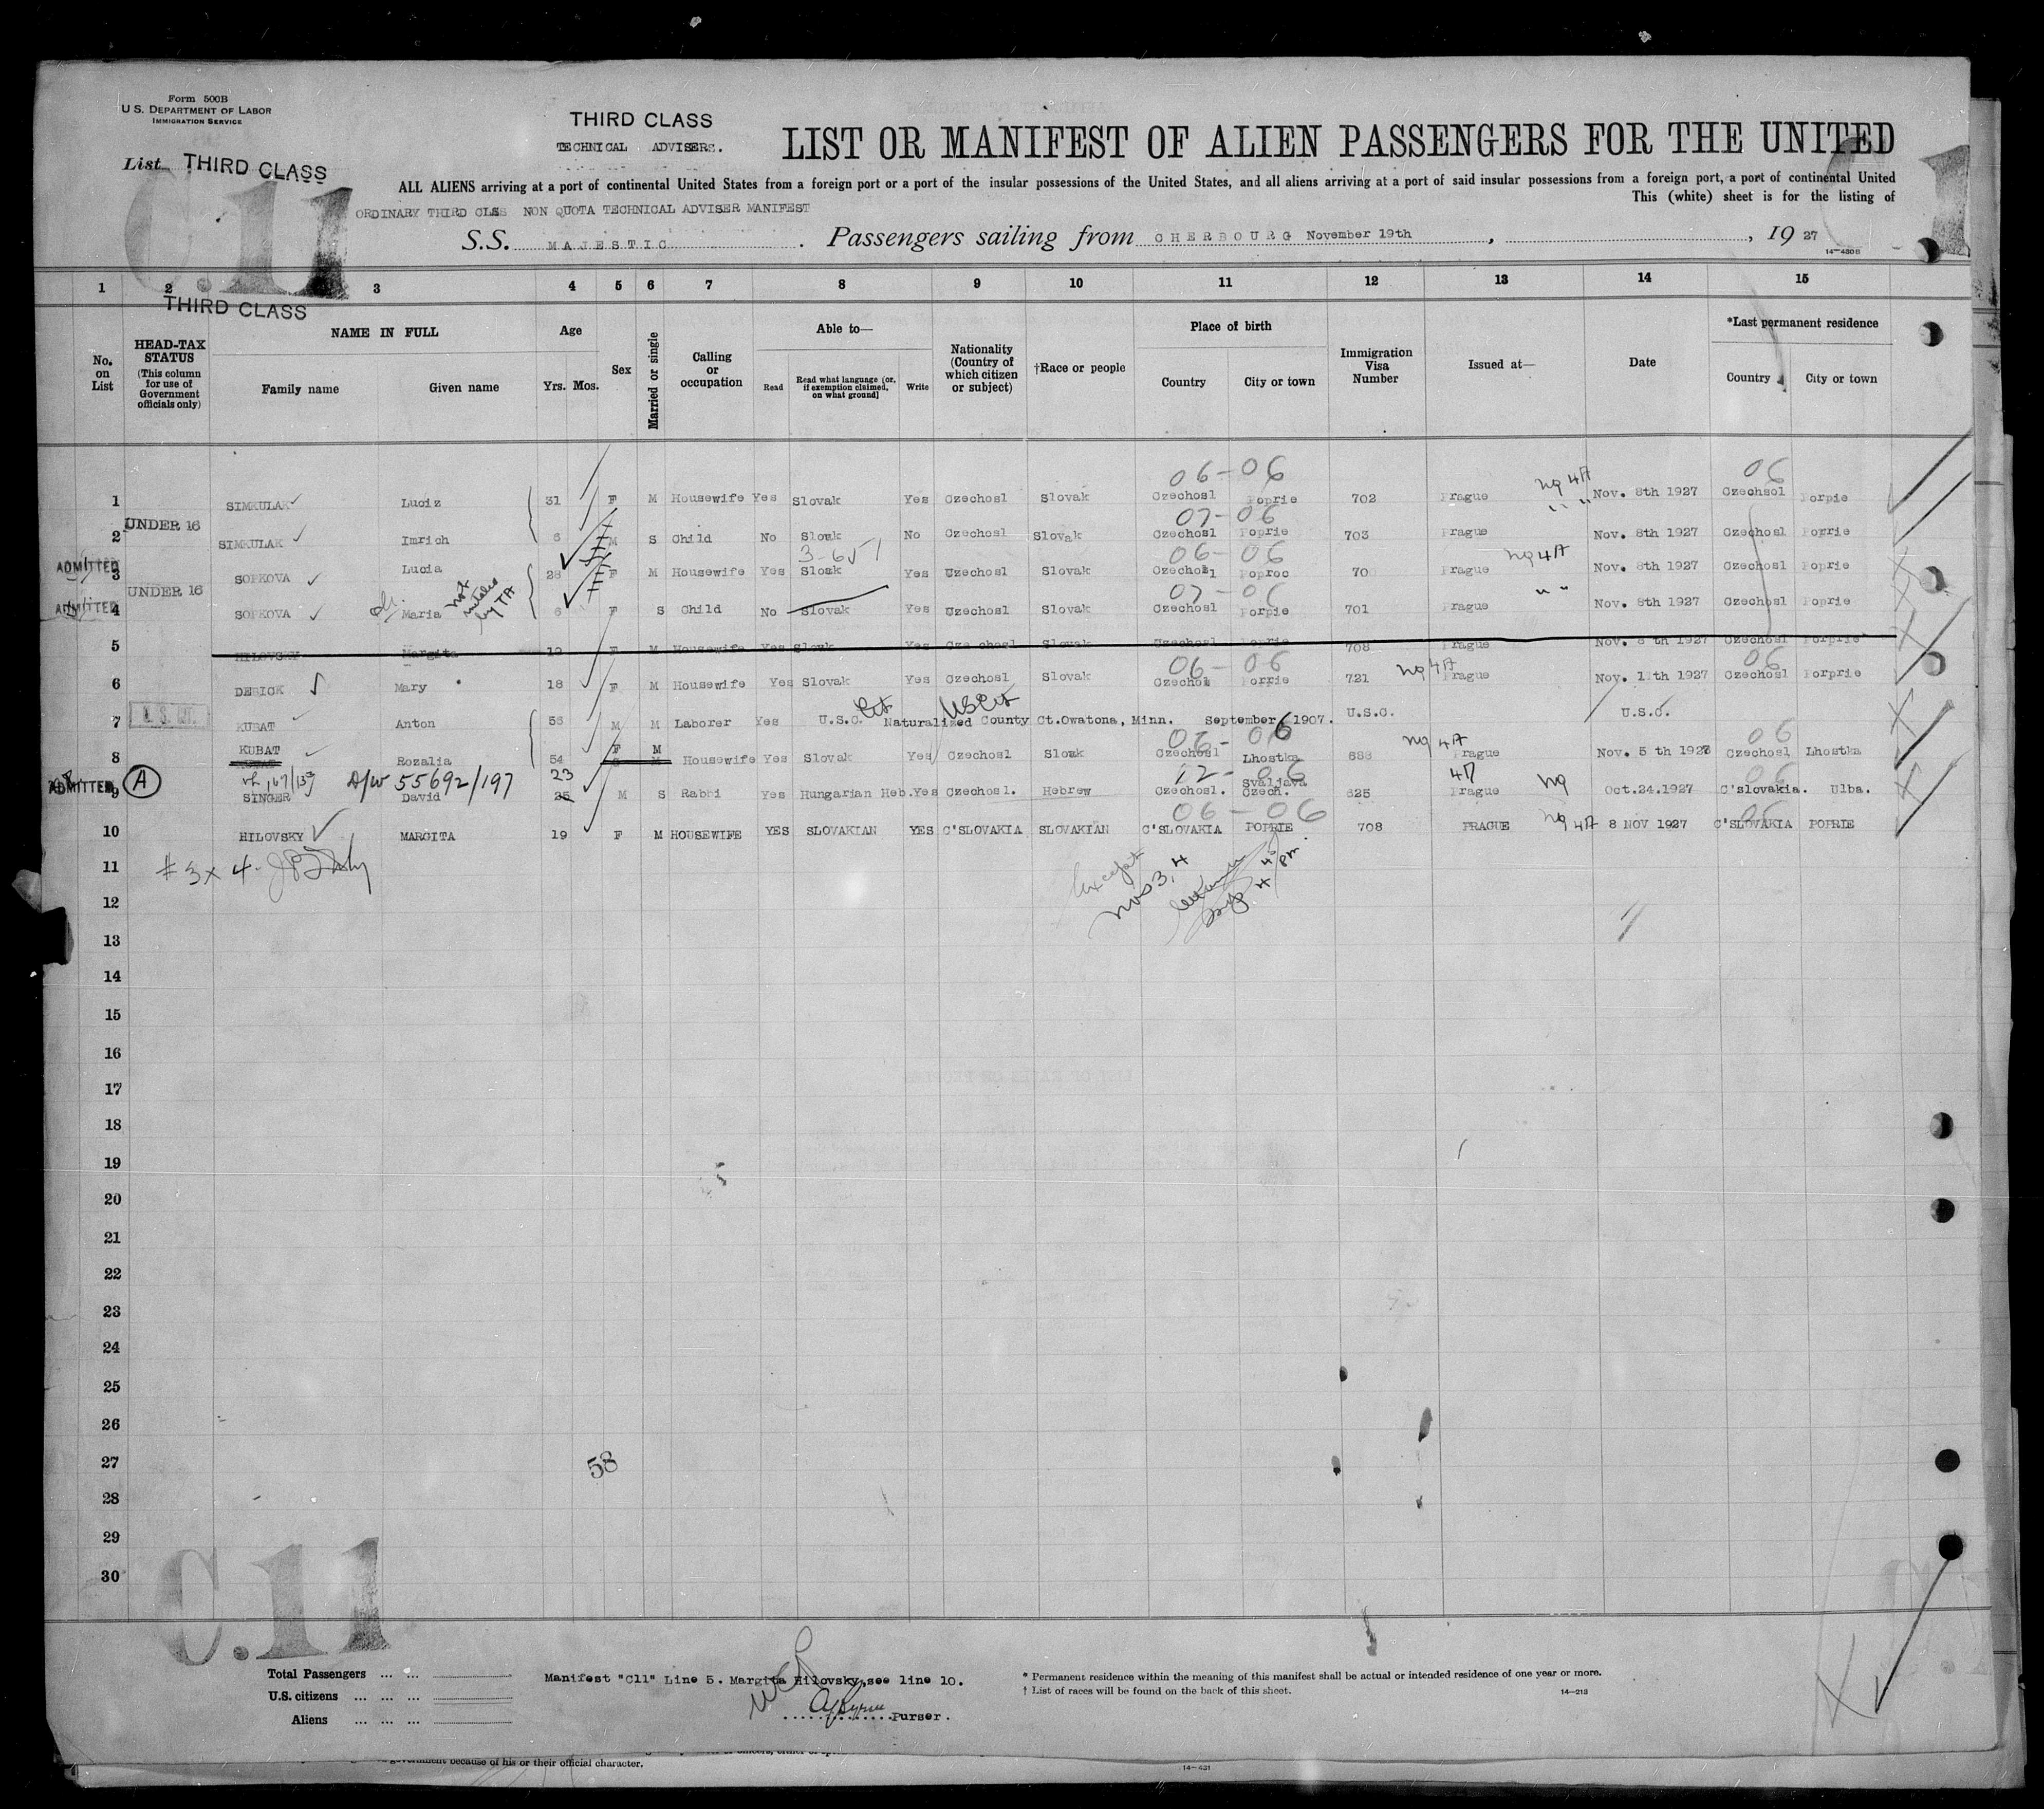 Form 500B
U.S. DEPARTMENT OF LABOR
IMMIGRATION SERVICE
List THIRD CLASS
THIRD CLASS
TECHNICAL ADVISERS.
LIST OR MANIFEST OF ALIEN PASSENGERS FOR THE UNITED
ALL ALIENS arriving at a port of continental United States from a foreign port or a port of the insular possessions of the United States, and all aliens arriving at a port of said insular possessions from a foreign port, a port of continental United
This (white) sheet is for the listing of
C.11
ORDINARY THIRD CLSS NON QUOTA TECHNICAL ADVISER MANIFEST
S.S. MAJESTIC. Passengers sailing from CHERBOURG November 19th, , 19 27
14-430B
1 2 3 4 5 6 7 8 9 10 11 12 13 14 15
THIRD CLASS
No. on List
HEAD-TAX STATUS (This column for use of Government officials only)
NAME IN FULL
Family name Given name
Age
Yrs. Mos.
Sex
Married or single
Calling or occupation
Able to—
Read Read what language [or, if exemption claimed, on what ground] Write
Nationality (Country of which citizen or subject)
†Race or people
Place of birth
Country City or town
Immigration Visa Number
Issued at—
Date
*Last permanent residence
Country City or town
06-06 nq 4A 06
1 SIMKULAK Luciz 31 F M Housewife Yes Slovak Yes Czechosl Slovak Czechosl Poprie 702 Prague Nov. 8th 1927 Czechsol Porpie
UNDER 16 07-06 " "
2 SIMKULAK Imrich 6 M S Child No Slovk No Czechosl Slovak Czechosl Poprie 703 Prague Nov. 8th 1927 Czechosl Porrie
ADMITTED 3-651 06-06 nq 4A
3 SOPKOVA Lucia 28 F M Housewife Yes Slosk Yes Czechosl Slovak Czechosl Poproc 70 Prague Nov. 8th 1927 Czechosl Poprie
UNDER 16 07-06 " "
ADMITTED
4 SOPKOVA Maria not by TA 6 F S Child No Slovak Yes Czechosl Slovak Czechosl Porpie 701 Prague Nov. 8th 1927 Czechosl Porpie
5 HILOVSKY Margita 19 F M Housewife Yes Slovk Yes Cze chosl Slovak Czechosl Poprie 708 Prague Nov. 8 th 1927 Czechosl Porprie
06-06 nq 4A 06
6 DEBICK Mary 18 F M Housewife Yes Slovak Yes Czechosl Slovak Czechosl Porrie 721 Prague Nov. 11th 1927 Czechosl Porprie
Cit US Cit
7 KUBAT Anton 56 M M Laborer Yes U.S.C. Naturalized County Ct.Owatona, Minn. September 6 1907. U.S.C. U.S.C.
06-06 nq 4A 06
8 KUBAT Rozalia 54 F M Housewife Yes Slovak Yes Czechosl Slovak Czechosl Lhostka 688 Prague Nov. 5 th 1927 Czechosl Lhostka
ADMITTED A A/W 55692/197 23 12-06 4A nq 06
9 SINGER David 25 M S Rabbi Yes Hungarian Heb. Yes Czechosl. Hebrew Czechosl. Svaljava Czech. 625 Prague Oct.24.1927 C'slovakia. Ulba.
06-06 nq 4A 06
10 HILOVSKY MARGITA 19 F M HOUSEWIFE YES SLOVAKIAN YES C'SLOVAKIA SLOVAKIAN C'SLOVAKIA POPRIE 708 PRAGUE 8 NOV 1927 C'SLOVAKIA POPRIE
11 # 3 x 4
Except nos 3, 4
12
13
14
15
16
17
18
19
20
21
22
23
24
25
26
27 58
28
29
30
C.11
Total Passengers
U.S. citizens
Aliens
Manifest "C11" Line 5. Margita Hilovsky,see line 10.
Purser.
* Permanent residence within the meaning of this manifest shall be actual or intended residence of one year or more.
† List of races will be found on the back of this sheet.
14-213
government because of his or their official character.
14-431